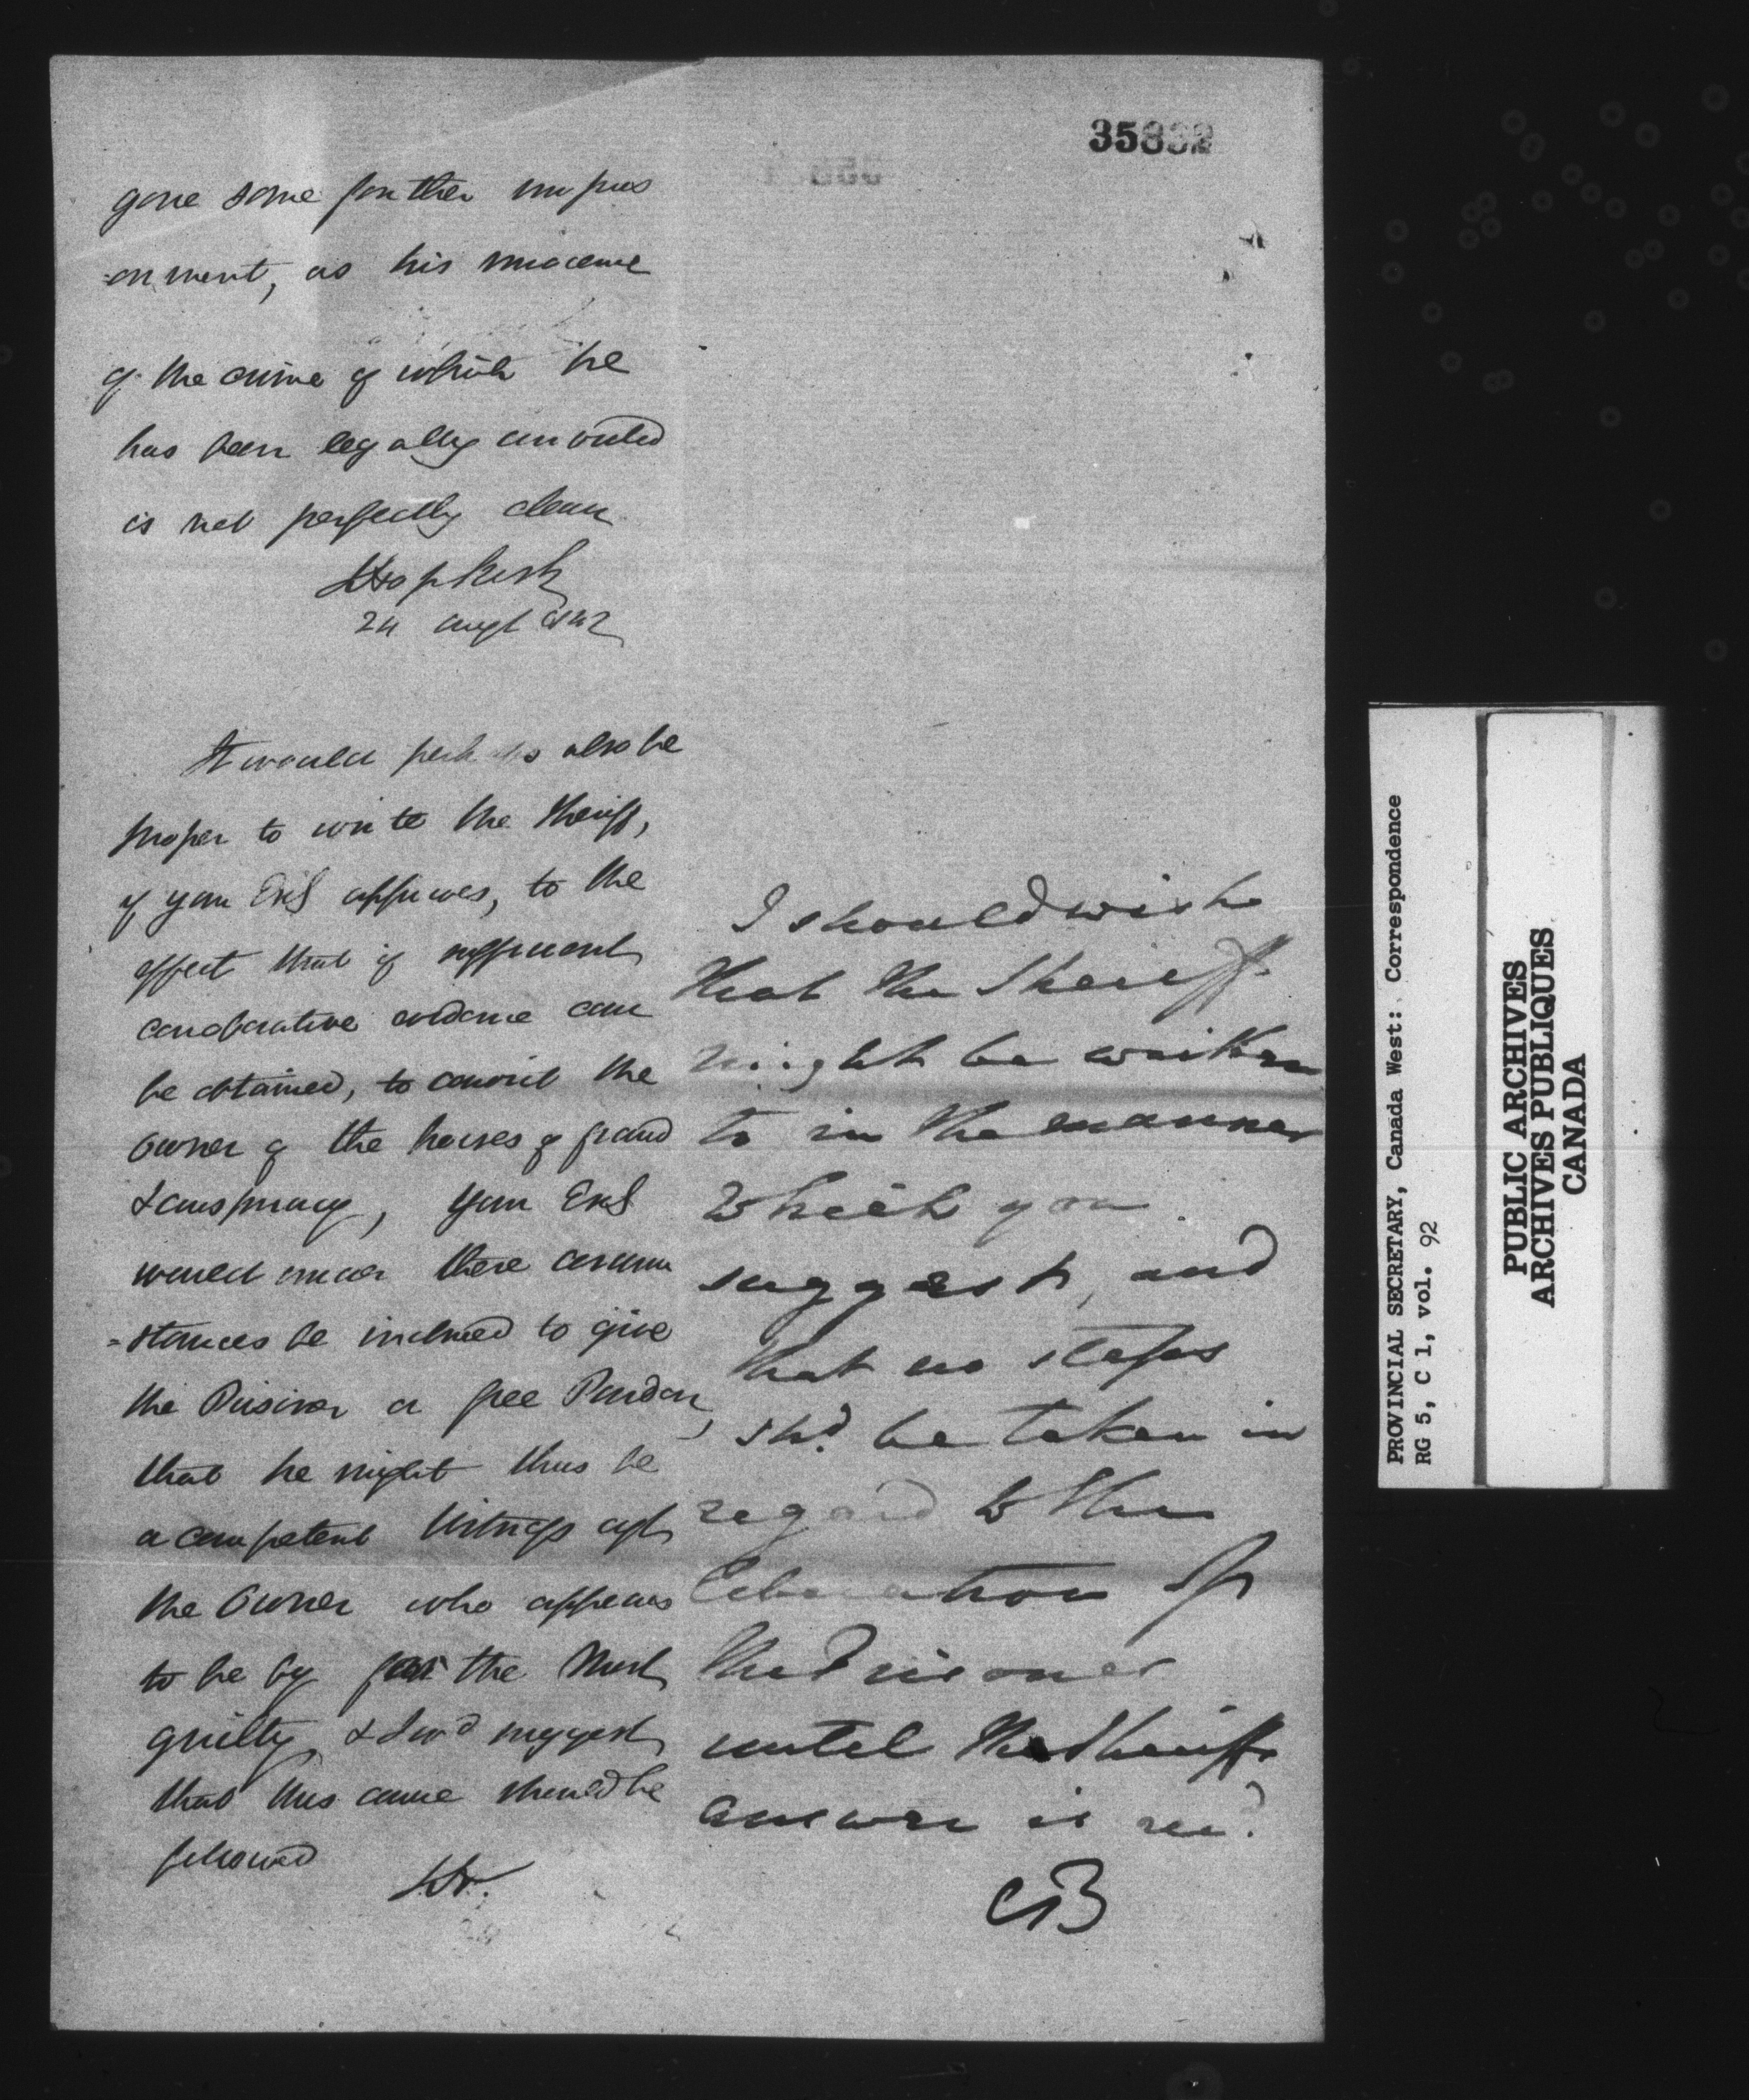 35832
gone some further impris
=onment, as his innocence
of the crime of which he
has been legally convicted
is not perfectly clear
24 augt 1842
It would perhaps also be
proper to write the Sheriff,
if your Exy approves, to the
effect that if sufficient
coroborative evidence can
be obtained, to convict the
owner of the horses of fraud
& conspiracy, your Exy
would under these circum
=stances be inclined to give
the Prisoner a free Pardon,
that he might thus be
a competent Witness agt
the Owner who appears
to be by far the most
guilty, & I wd suggest
that this course should be
followed
I should wish
that the Sheriff
might be written
to in the manner
which you
suggest, and
that no steps
shd be taken in
regard to the
liberation of
the Prisoner
until the Sheriffs
answer is recd.
CB
PROVINCIAL SECRETARY, Canada West: Correspondence
RG 5, C 1, vol. 92
PUBLIC ARCHIVES
ARCHIVES PUBLIQUES
CANADA